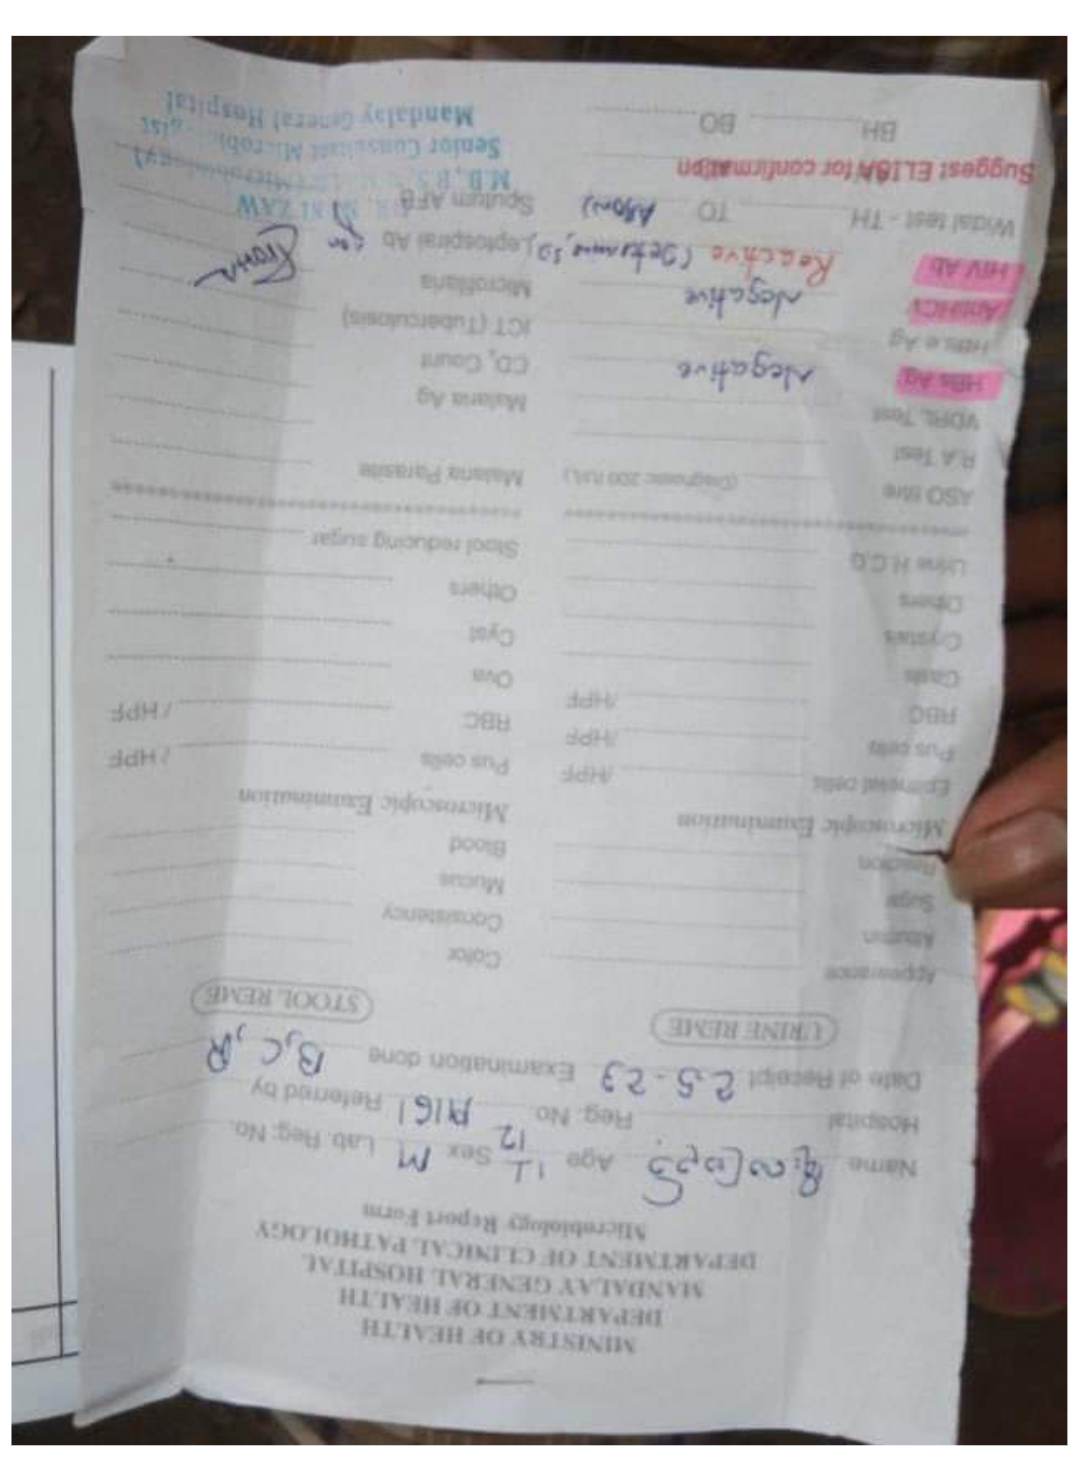 MINISTRY OF HEALTH
DEPARTMENT OF HEALTH
MANDALAY GENERAL HOSPITAL
DEPARTMENT OF CLINICAL PATHOLOGY
Microbiology Report Form
Name Age Sex M Lab. Reg: No.
Hospital Reg: No. Referred by
Date of Receipt 2.5.23 Examination done B, C, R
URINE REME STOOL REME
Appearance Color
Albumin Consistency
Sugar Mucus
Reaction Blood
Microscopic Examination Microscopic Examination
Epithelial cells /HPF Pus cells /HPF
Pus cells /HPF RBC /HPF
RBC /HPF Ova
Casts Cyst
Crystals Others
Others Stool reducing sugar
Urine H.C.G
ASO titre (Diagnostic 200 IU/L) Malaria Parasite
R.A Test
VDRL Test Malaria Ag
HBs Ag Negative CD4 Count
HBs e Ag ICT (Tuberculosis)
Anti HCV Negative Microfilaria
HIV Ab Reactive (Determine, SD) Leptospiral Ab
Widal test - TH TO Sputum AFB
Suggest ELISA for confirmation
BH BO
M.B., B.S
Senior Consultant
Mandalay General Hospital